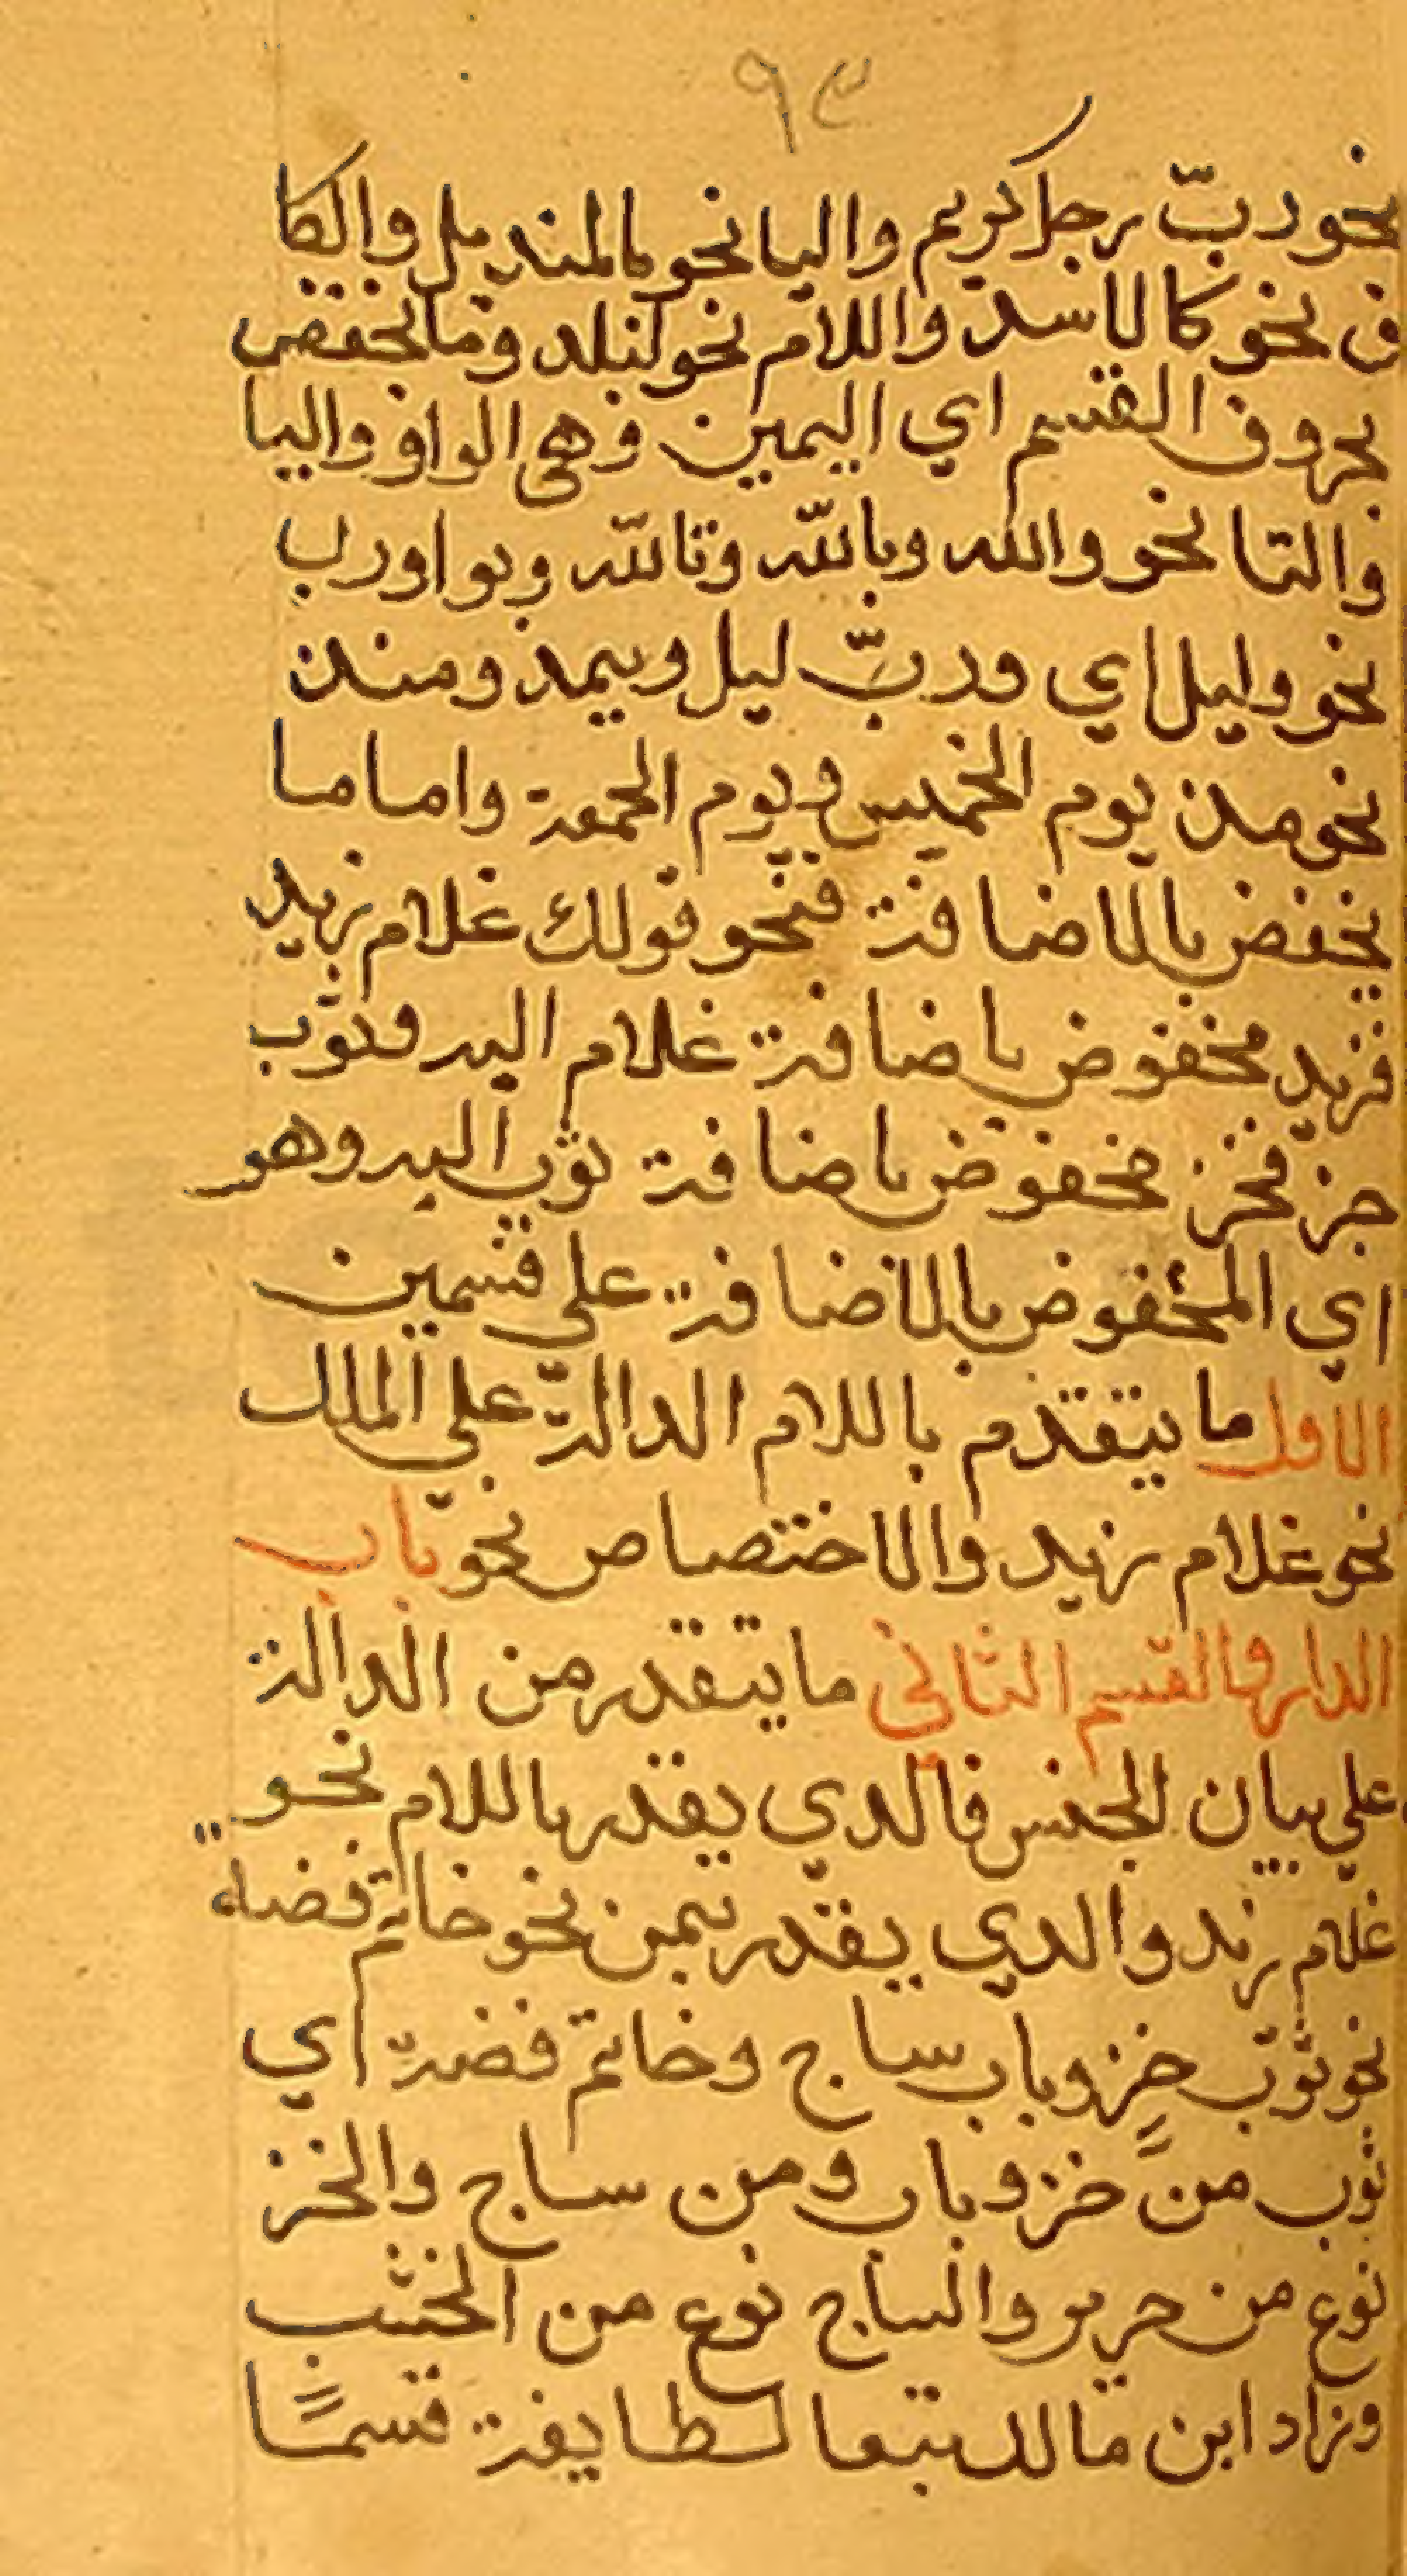 ٩٤
نحو ربّ رجل كريم والبا نحو بالمنديل والكا
ف نحو كالاسد واللام نحو لبلد وما يخفض
بحروف القسم اي اليمين وهى الواو والبا
والتا نحو والله وبالله وتالله وبواو رب
نحو وليل اي وربّ ليل وبمذ ومنذ
نحو مذ يوم الخميس ويوم الجمعة واما ما
يخفض بالاضافة فنحو قولك غلام زيد
فزيد مخفوض باضافة غلام اليه وثوب
خز فخز مخفوض باضافة ثوب اليه وهو
اي المخفوض بالاضافة على قسمين
الاول ما يتقدم باللام الدالة على الملك
نحو غلام زيد والاختصاص نحو باب
الدار والقسم الثاني ما يتقدر من الدالة
على بيان الجنس فالدي يقدر باللام نحو
غلام زيد والدي يقدر بمن نحو خاتم فضة
نحو ثوب خزٍ وباب ساج وخاتم فضة اي
ثوب من خز وباب ومن ساج والخز
نوع من حرير والساج نوع من الخشب
وزاد ابن مالك تبعا لطايفة قسمًا